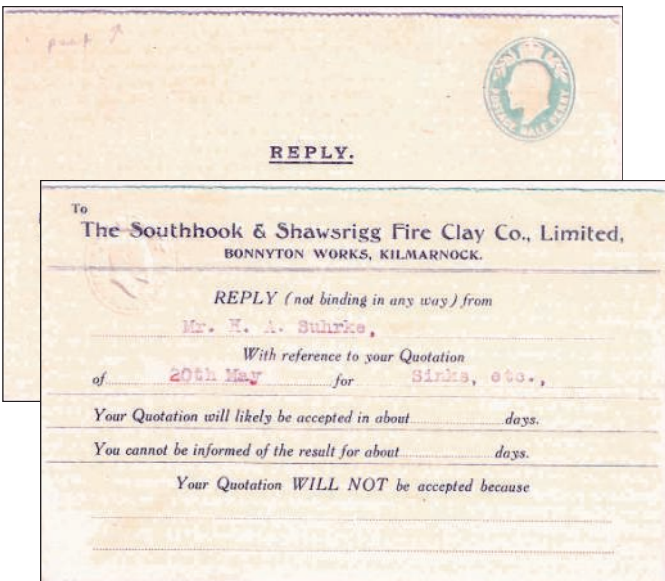 POSTAGE HALF PENNY
REPLY.
To
The Southhook & Shawsrigg Fire Clay Co., Limited,
BONNYTON WORKS, KILMARNOCK.
REPLY (not binding in any way) from
Mr. H. A. Suhrke,
With reference to your Quotation
of 20th May for Sinks, etc.,
Your Quotation will likely be accepted in about days.
You cannot be informed of the result for about days.
Your Quotation WILL NOT be accepted because